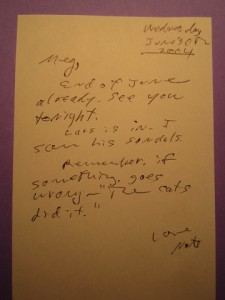 Wednesday
June 30th
2004
Meg,
End of June
already. See you
tonight.
Lars is in. I
saw his sandals.
Remember, if
something goes
wrong - "The cats
did it."
Love
Nate